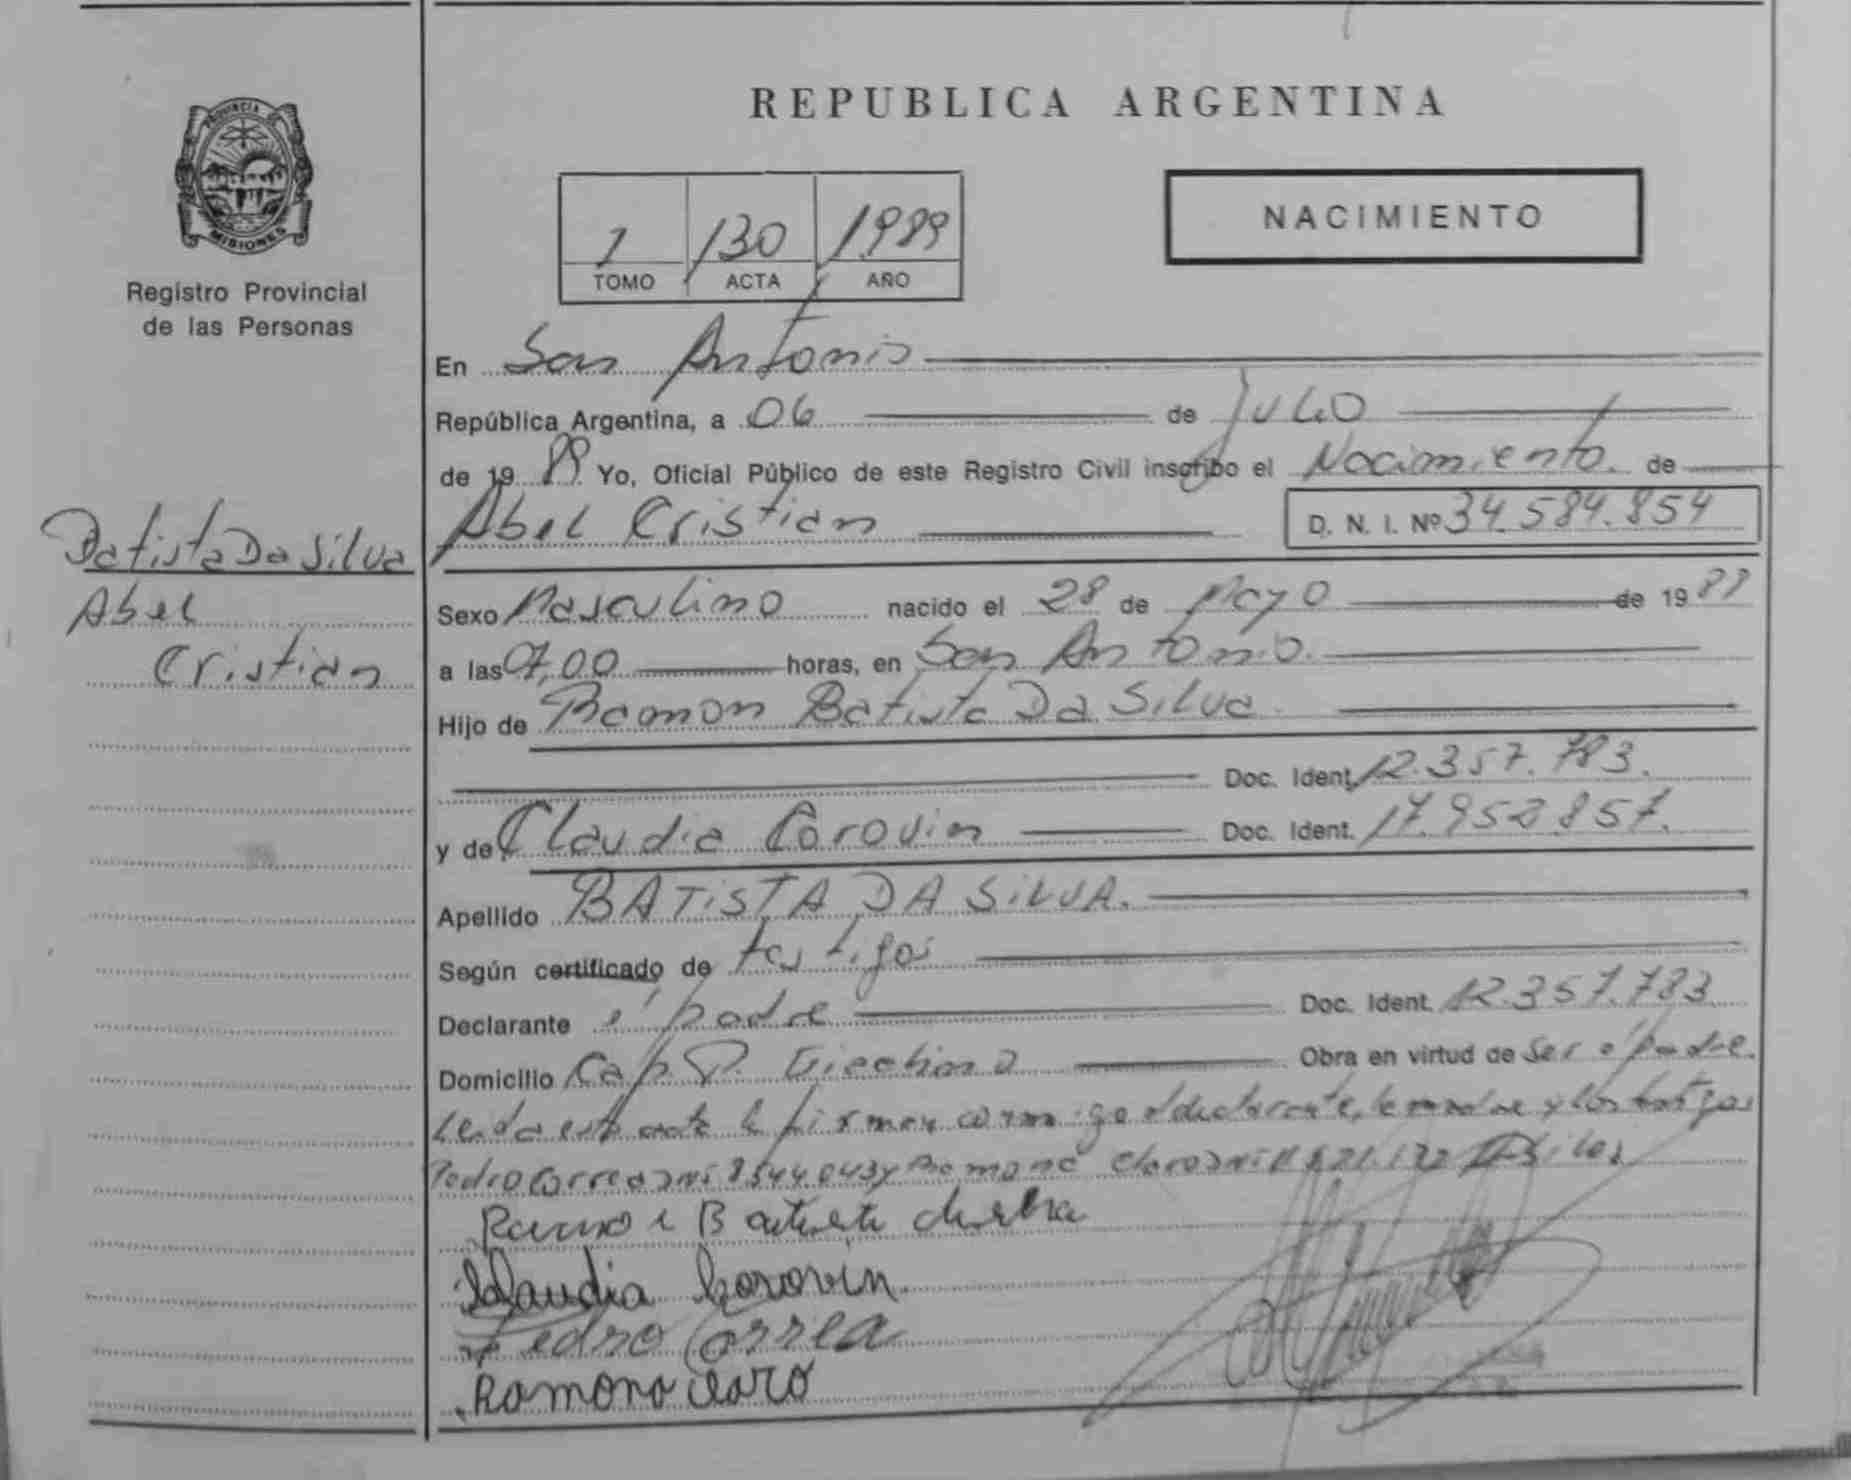 REPUBLICA ARGENTINA
PROVINCIA DE MISIONES
Registro Provincial
de las Personas
1 TOMO
130 ACTA
1989 AÑO
NACIMIENTO
En San Antonio
República Argentina, a 06 de Julio
de 1989 Yo, Oficial Público de este Registro Civil inscribo el Nacimiento de
Batista Da Silva
Abel
Cristian
Abel Cristian D. N. I. Nº 34.584.854
Sexo Masculino nacido el 28 de Mayo de 1989
a las 07,00 horas, en San Antonio.
Hijo de Ramon Batista Da Silva
Doc. Ident. 12.357.783.
y de Claudia Corovin Doc. Ident. 17.952.857.
Apellido BATISTA DA SILVA.
Según certificado de testigos
Declarante el padre Doc. Ident. 12.357.783
Domicilio Cap. Obra en virtud de ser el padre.
Leida esta acta la firman conmigo el declarante, la madre y los testigos
Pedro Correa DNI 8544043 y Ramona Claro DNI
Claudia Corovin.
Pedro Correa
Ramona Claro